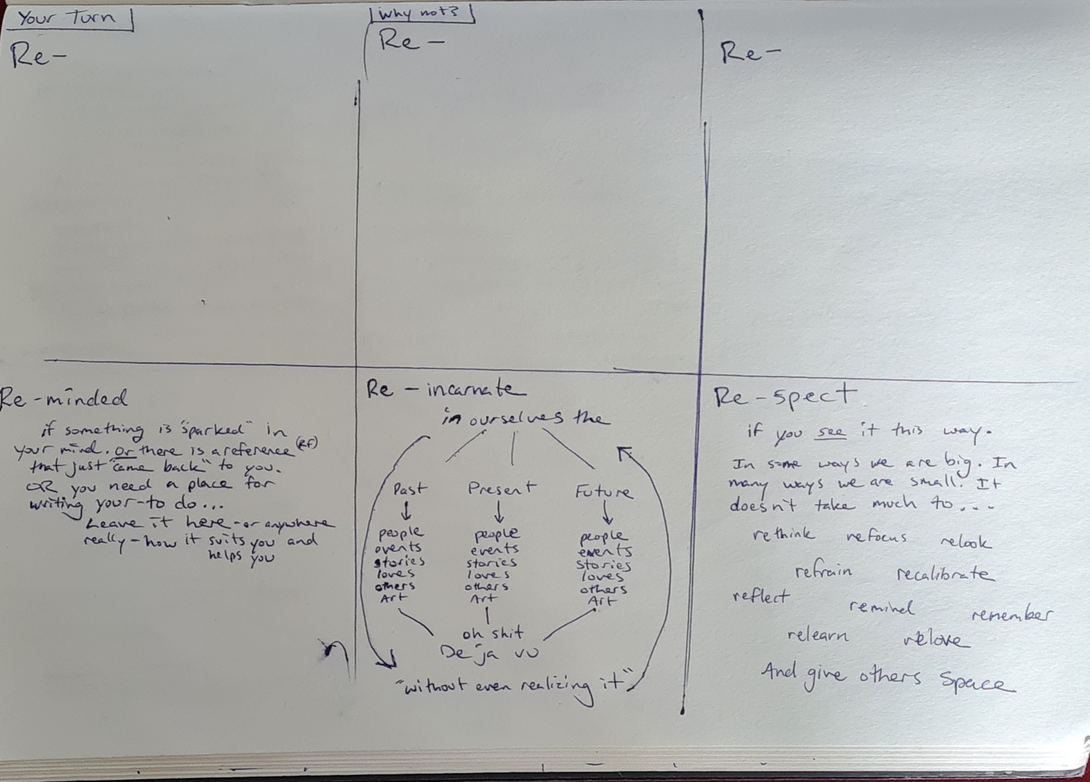 Your Turn
Re-
Why not?
Re-
Re-
Re-minded
if something is "sparked" in
your mind. Or there is a reference (Ref)
that just "came back" to you.
OR you need a place for
writing your-to do...
Leave it here - or anywhere
really - how it suits you and
helps you
Re-incarnate
in ourselves the
Past Present Future
people people people
events events events
stories stories stories
loves loves loves
others others others
Art Art Art
oh shit
Deja vu
"without even realizing it"
Re-spect
if you see it this way.
In some ways we are big. In
many ways we are small. It
doesn't take much to...
rethink refocus relook
refrain recalibrate
reflect remind remember
relearn relove
And give others space